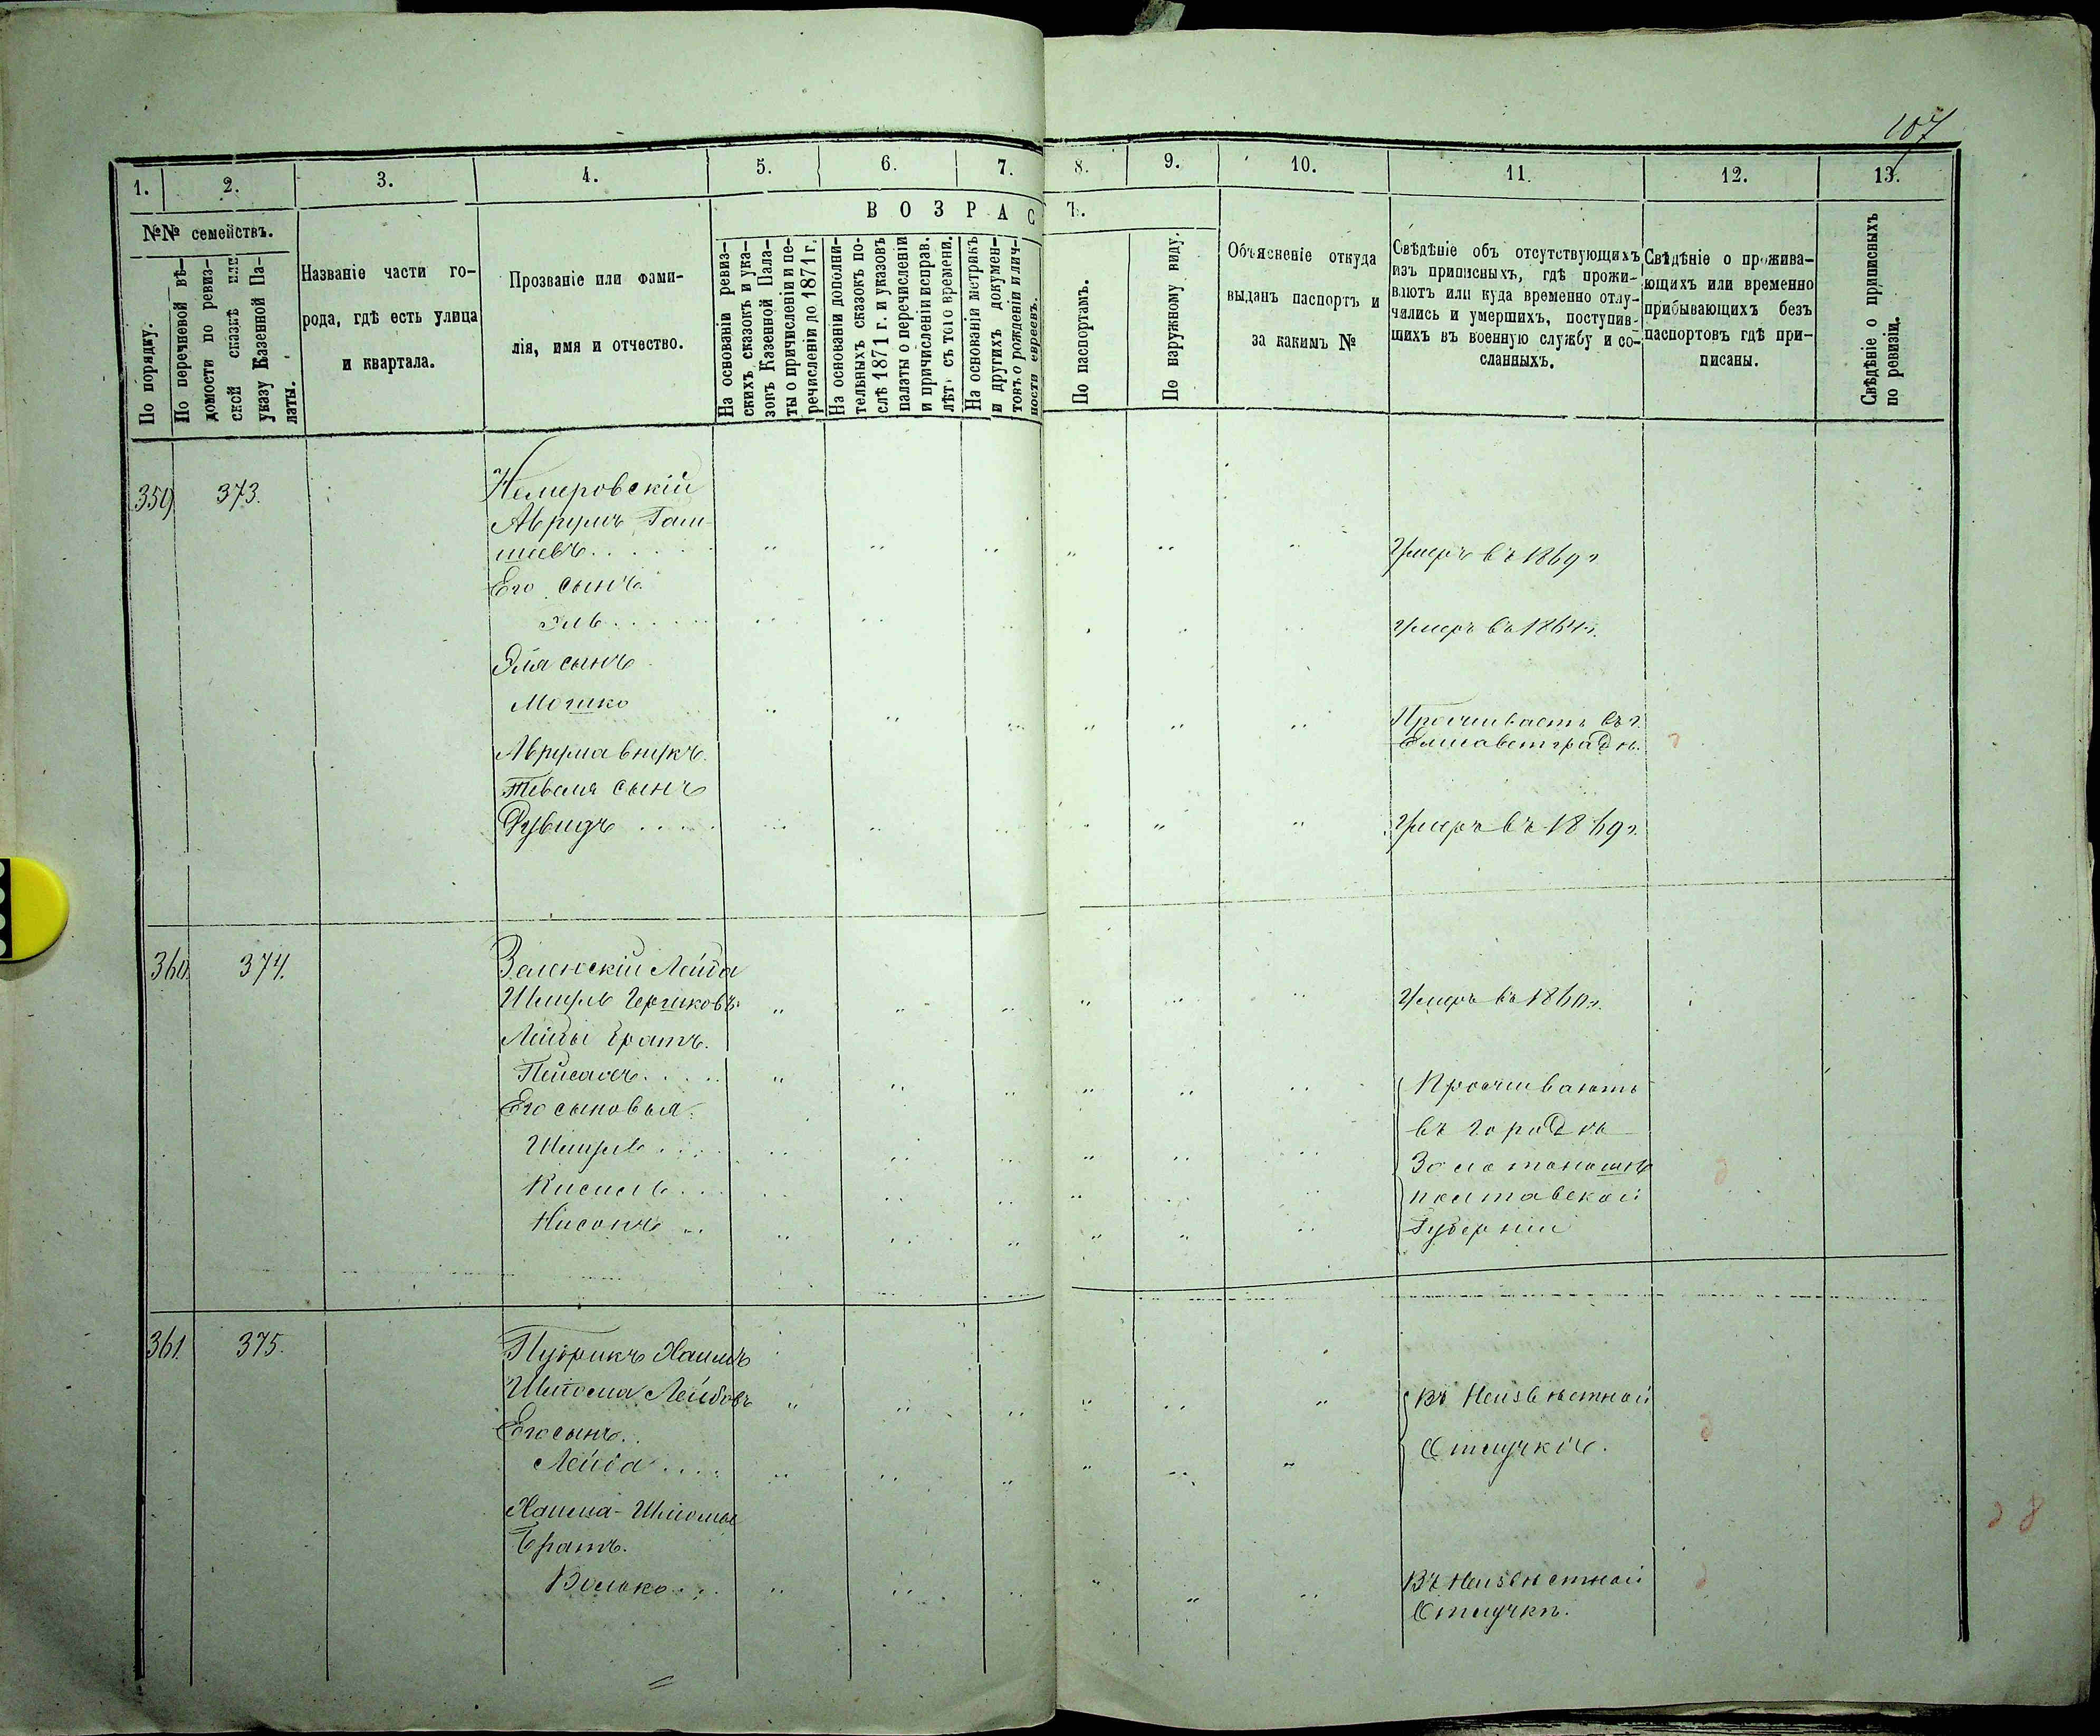 107
1. 2. 3. 4. 5. 6. 7. 8. 9. 10. 11. 12. 13.
№№ семействъ.
По порядку.
По перечневой вѣ-
домости по ревиз-
ской сказкѣ или
указу Казенной Па-
латы.
Названіе части го-
рода, гдѣ есть улица
и квартала.
Прозваніе или фами-
лія, имя и отчество.
ВОЗРАСТЪ.
На основаніи ревиз-
скихъ сказокъ и ука-
зовъ Казенной Пала-
ты о причисленіи и пе-
речисленіи до 1871 г.
На основаніи дополни-
тельныхъ сказокъ по-
слѣ 1871 г. и указовъ
палаты о перечисленіи
и причисленіи исправ.
лѣтъ съ того времени.
На основаніи метрикъ
и другихъ докумен-
товъ о рожденіи и лич-
ности евреевъ.
По паспортамъ.
По наружному виду.
Объясненіе откуда
выданъ паспортъ и
за какимъ №
Свѣдѣніе объ отсутствующихъ
изъ приписныхъ, гдѣ прожи-
ваютъ или куда временно отлу-
чились и умершихъ, поступив-
шихъ въ военную службу и со-
сланныхъ.
Свѣдѣніе о прожива-
ющихъ или временно
прибывающихъ безъ
паспортовъ гдѣ при-
писаны.
Свѣдѣніе о приписныхъ
по ревизіи.
359 373. Немировскій
Аврумъ
Умеръ въ 1869 г
Его сынъ
Эль Умеръ въ 1864 г.
Эля сынъ
Мошко
Проживаетъ въ г.
Елисаветградѣ.
Аврума внукъ.
Тевеля сынъ
Дувидъ Умеръ въ 1869 г.
360 374. Зеленскій Лейба
Шмуль Гершковъ Умеръ въ 1860 г.
Лейбы братъ.
Пейсахъ Проживаютъ
Его сыновья: въ городѣ
Шмуль Золотоношѣ
Кисиль полтавской
Нисонъ Губерніи
361. 375. Путрикъ Хаимъ
Шлёма Лейбовъ Въ Неизвѣстной
Его сынъ. Отлучкѣ.
Лейба
Хаима-Шлёмы
братъ.
Волько Въ Неизвѣстной
Отлучкѣ.